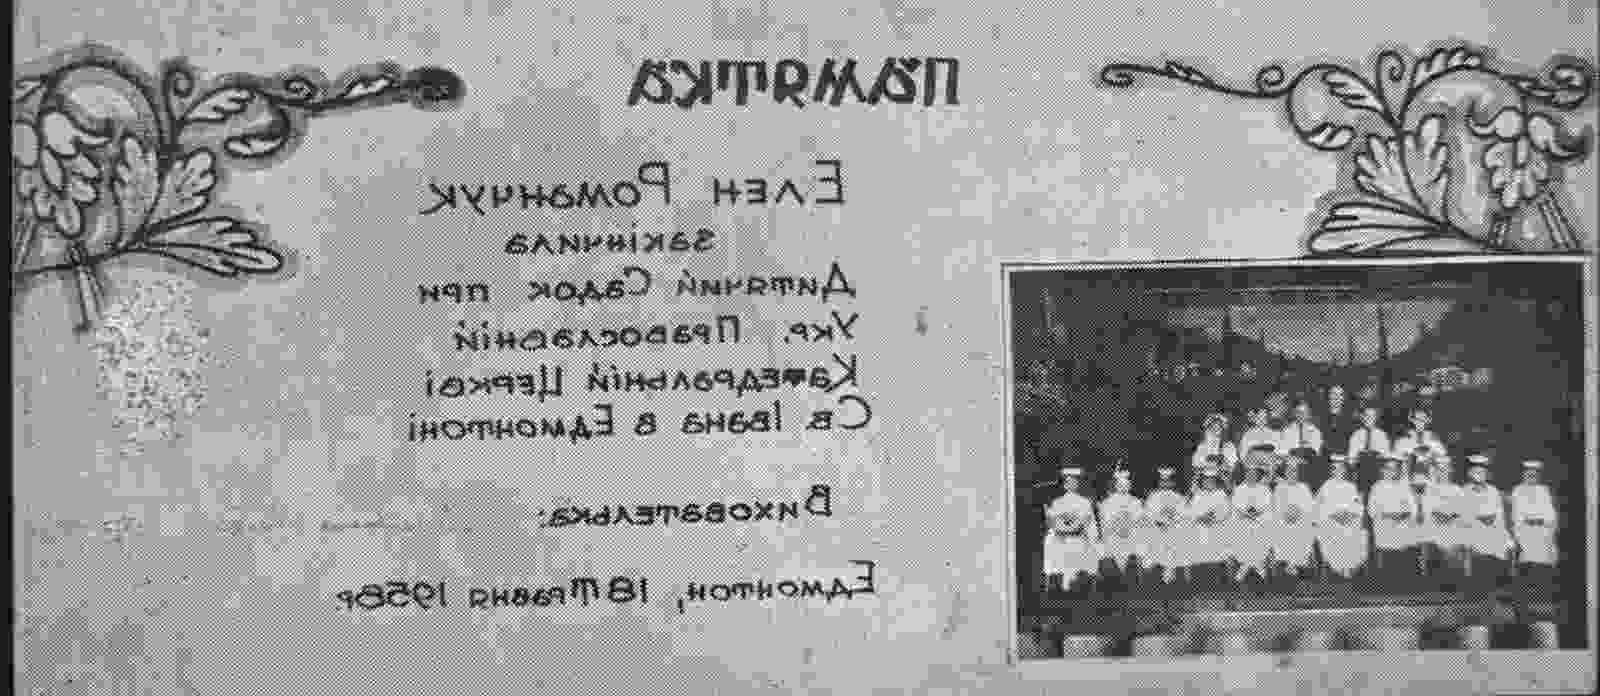 ПАМЯТКА
Елен Романчук
закінчила
Дитячий Садок при
Укр. Православній
Катедральній Церкві
Св. Івана в Едмонтоні
Вихователька:
Едмонтон, 18 Травня 1958р